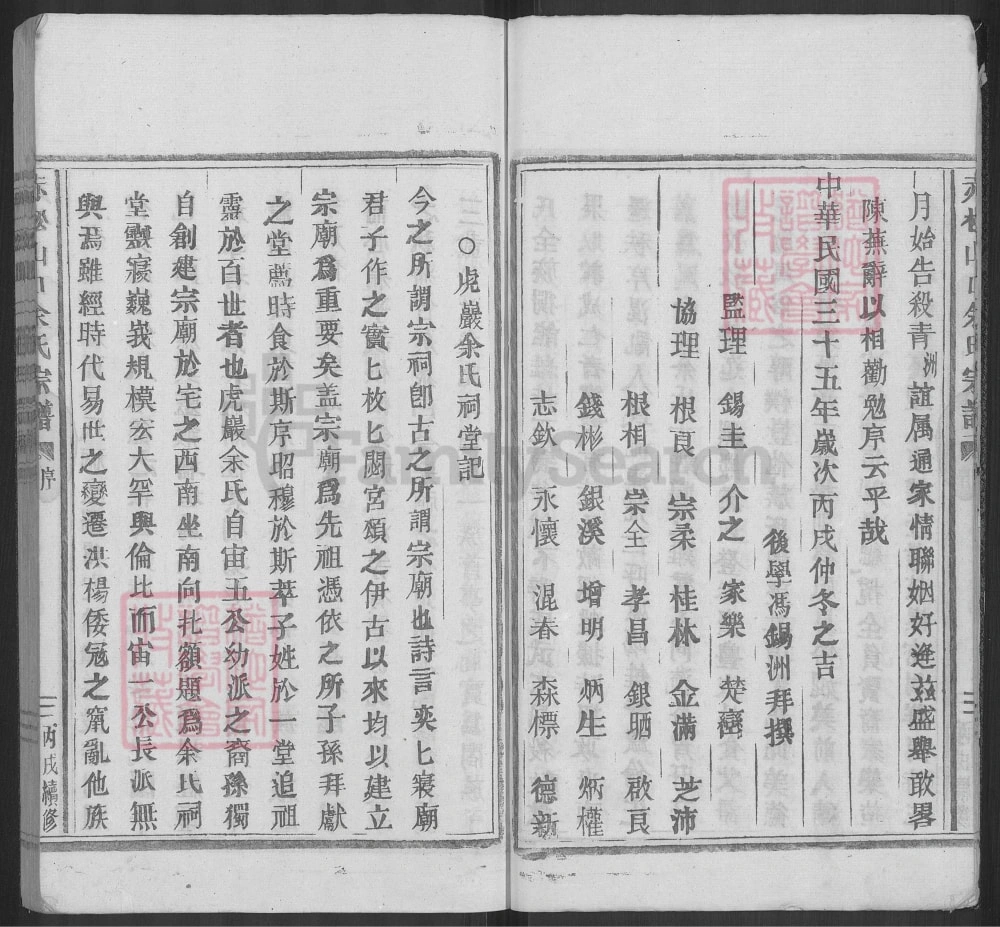 月始告殺青洲誼属通家情聯姻好逢兹盛舉敢畧
陳蕪辭以相勸勉序云乎哉
中華民國三十五年歲次丙戌仲冬之吉
後學馮錫洲拜撰
監理 錫圭 介之 家樂 楚巒
協理 根良 宗柔 桂林 金滿 芝沛
根相 崇全 孝昌 銀晒 啟良
錢彬 銀溪 增明 炳生 炳權
志欽 永懷 混春 森標 德新
○虎巖余氏祠堂記
今之所謂宗祠卽古之所謂宗廟也詩言奕匕寢廟
君子作之實匕枚匕閟宮頌之伊古以來均以建立
宗廟爲重要矣盖宗廟爲先祖憑依之所子孫拜獻
之堂薦時食於斯序昭穆於斯萃子姓於一堂追祖
靈於百世者也虎巖余氏自宙五公幼派之裔孫獨
自創建宗廟於宅之西南坐南向北額題爲余氏祠
堂靈寢巍峩規模宏大罕與倫比而宙一公長派無
與焉雖經時代易世之變遷洪楊倭冦之竄亂他族
余氏宗譜 序
二 丙戌續修
FamilySearch